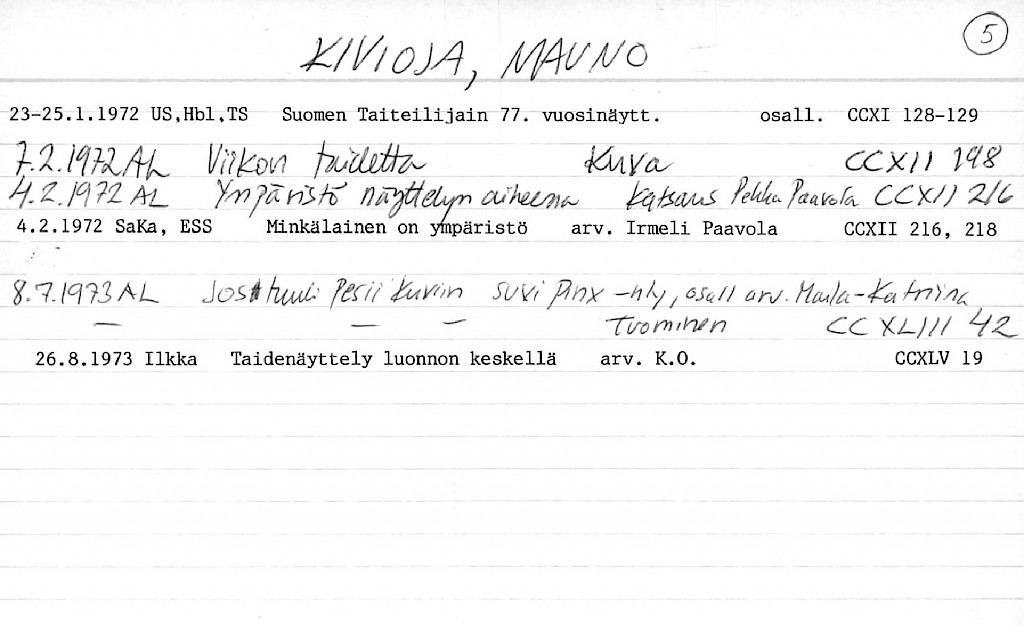 5
KIVIOJA, MAUNO
23-25.1.1972 US,Hbl,TS Suomen Taiteilijain 77. vuosinäytt. osall. CCXI 128-129
7.2.1972 AL Viikon taidetta Kuva CCXII 198
4.2.1972 AL Ympäristö näyttelyn aiheena Katsaus Pekka Paavola CCXII 216
4.2.1972 SaKa, ESS Minkälainen on ympäristö arv. Irmeli Paavola CCXII 216, 218
8.7.1973 AL Jos tuuli pesii kuviin Suvi Pinx -nly, osall arv. Maila-Katriina
— — — Tuominen CCXLIII 42
26.8.1973 Ilkka Taidenäyttely luonnon keskellä arv. K.O. CCXLV 19